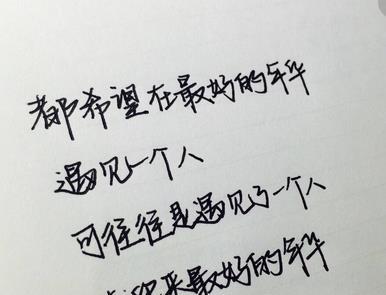 都希望在最好的年华
遇见一个人
可往往是遇见了一个人
才迎来最好的年华